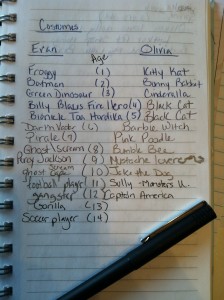 Costumes
Evan Olivia
Age
Froggy (1) Kitty Kat
Batman (2) Bunny Rabbit
Green Dinosaur (3) Cinderella
Billy Blazes Fire Hero (4) Black Cat
Bionicle Toa Hordika (5) Black Cat
Darth Vader (6) Barbie Witch
Pirate (7) Pink Poodle
Ghost/Scream (8) Bumble Bee
Percy Jackson (9) Mystache lover
ghost Scream (10) Jake the Dog
football player (11) Sully Monsters U.
gangster (12) Captain America
Gorilla (13)
Soccer player (14)